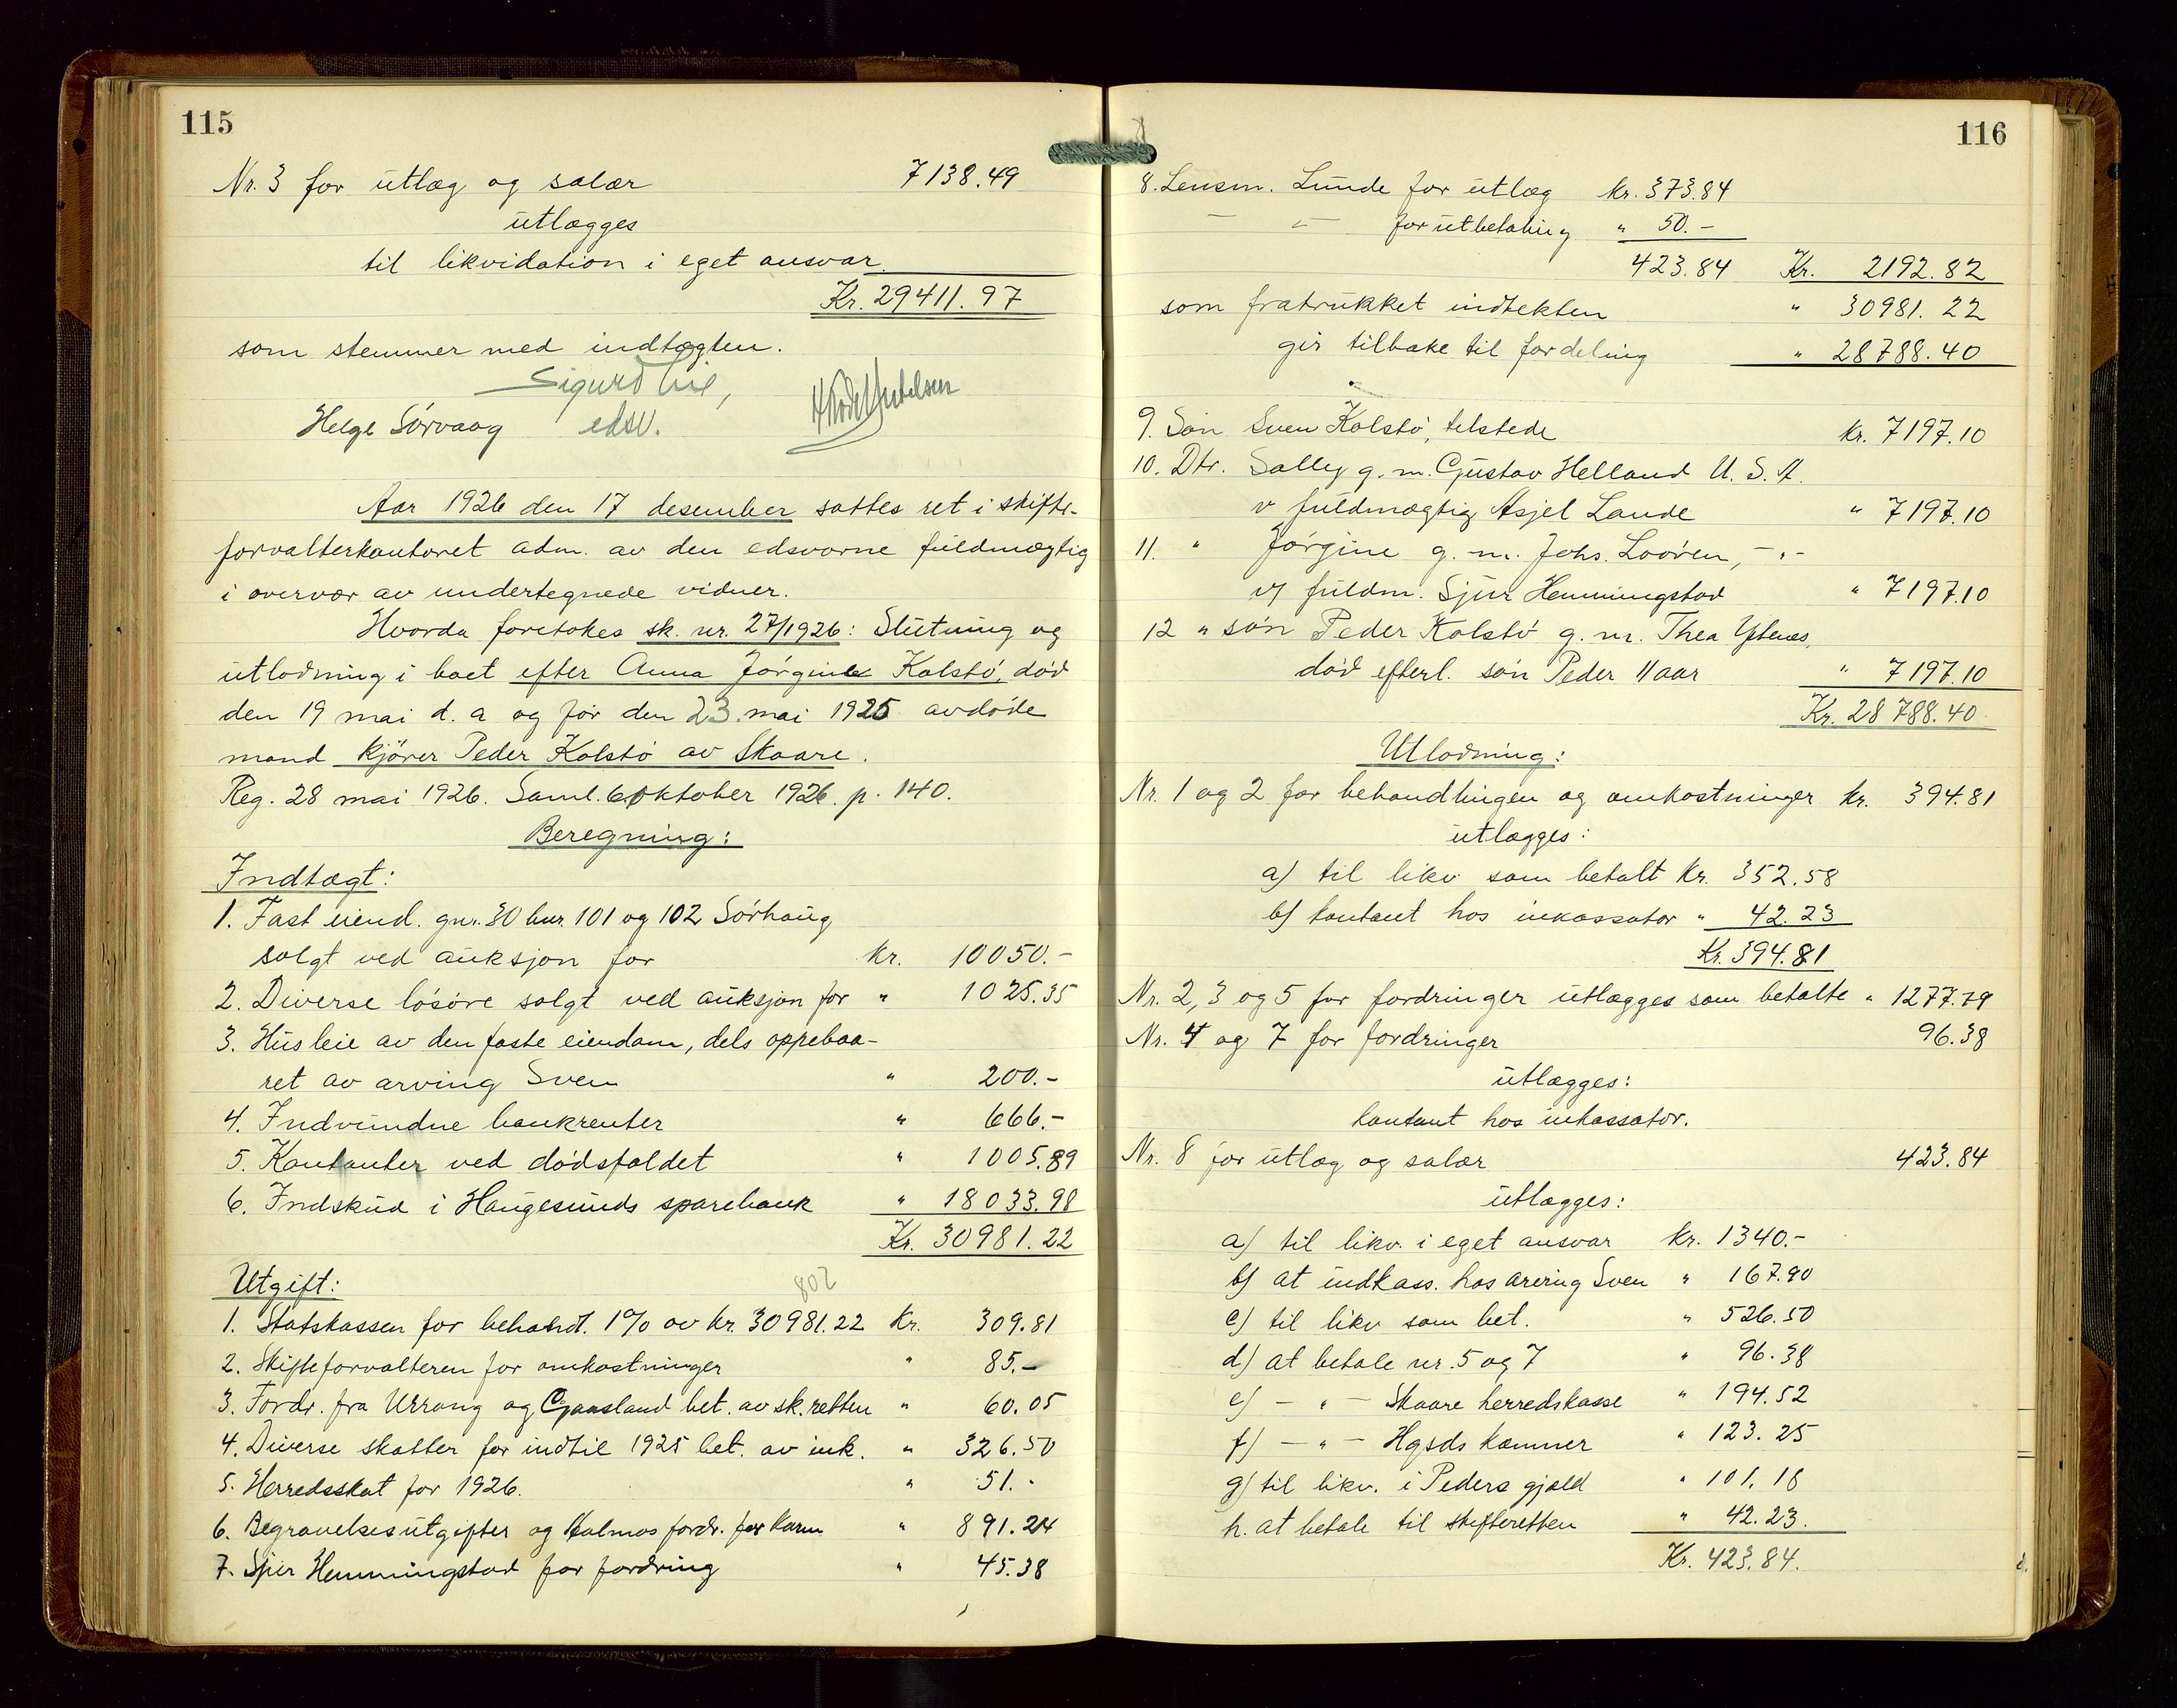 115
Nr. 3 for utlæg og salær 7138.49
utlægges
til likvidation i eget ansvar
Kr. 29411.97
som stemmer med indtægten.
Sigurd
Helge Sørvaag edsv.
Aar 1926 den 17 desember sattes ret i skifte-
forvalterkontoret adm. av den edsvorne fuldmægtig
i overvær av undertegnede vidner.
Hvorda foretokes sk. nr. 27/1926: Slutning og
utlodning i boet efter Anna Jørgine Kolstø, død
den 19 mai d. a og før den 23. mai 1925 avdøde
mand kjører Peder Kolstø av Skaare.
Reg. 28 mai 1926. Saml. 6 oktober 1926. p. 140.
Beregning:
Indtægt:
1. Fast eiend. gnr. 30 bnr. 101 og 102 Sørhaug
solgt ved auksjon for kr. 10050.-
2. Diverse løsøre solgt ved auksjon for " 1025.35
3. Husleie av den faste eiendom, dels oppebaa-
ret av arving Sven " 200.-
4. Indvundne bankrenter " 666.-
5. Kontanter ved dødsfaldet " 1005.89
6. Indskud i Haugesunds sparebank " 18033.98
Kr. 30981.22
Utgift: 802
1. Statskassen for behandl. 1% av kr. 30981.22 Kr. 309.81
2. Skifteforvalteren for omkostninger " 85.-
3. Fordr. fra Urrang og Gaasland bet. av sk.retten " 60.05
4. Diverse skatter for indtil 1925 bet. av ink. " 326.50
5. Herredsskat for 1926. " 51.-
6. Begravelsesutgifter og Halmøs fordr. for " 891.24
7. Sjur Hemmingstad for fordring " 45.38
116
8. Lensm. Lunde for utlæg kr. 373.84
— " — for utbetaling " 50.-
423.84 Kr. 2192.82
som fratrukket indtekten " 30981.22
gir tilbake til fordeling " 28788.40
9. Søn Sven Kolstø, telstede kr. 7197.10
10. Dtr. Sally g. m. Gustav Helland U. S. A.
v fuldmægtig Asjel Lande " 7197.10
11. " Jørgine g. m. Johs. Looven, - " -
v/ fuldm. Sjur Hemmingstad " 7197.10
12 " søn Peder Kolstø g. m. Thea
død efterl. søn Peder 11 aar " 7197.10
Kr. 28788.40
Utlodning:
Nr. 1 og 2 for behandlingen og omkostninger kr. 394.81
utlægges:
a) til likv som betalt Kr. 352.58
b) kontant hos inkassator " 42.23
Kr. 394.81
Nr. 2, 3 og 5 for fordringer utlægges som betalte " 1277.79
Nr. 4 og 7 for fordringer 96.38
utlægges:
kontant hos inkassator.
Nr. 8 for utlæg og salær 423.84
utlægges:
a) til likv. i eget ansvar kr. 1340.-
b) at indkass. hos arving Sven " 167.90
c) til likv som bet. " 526.50
d) at betale nr. 5 og 7 " 96.38
e) - " - Skaare herredskasse " 194.52
f) - " - Hgsds kæmner " 123.25
g) til likv. i Peders gjæld " 101.18
h. at betale til skifteretten " 42.23.
Kr. 423.84.